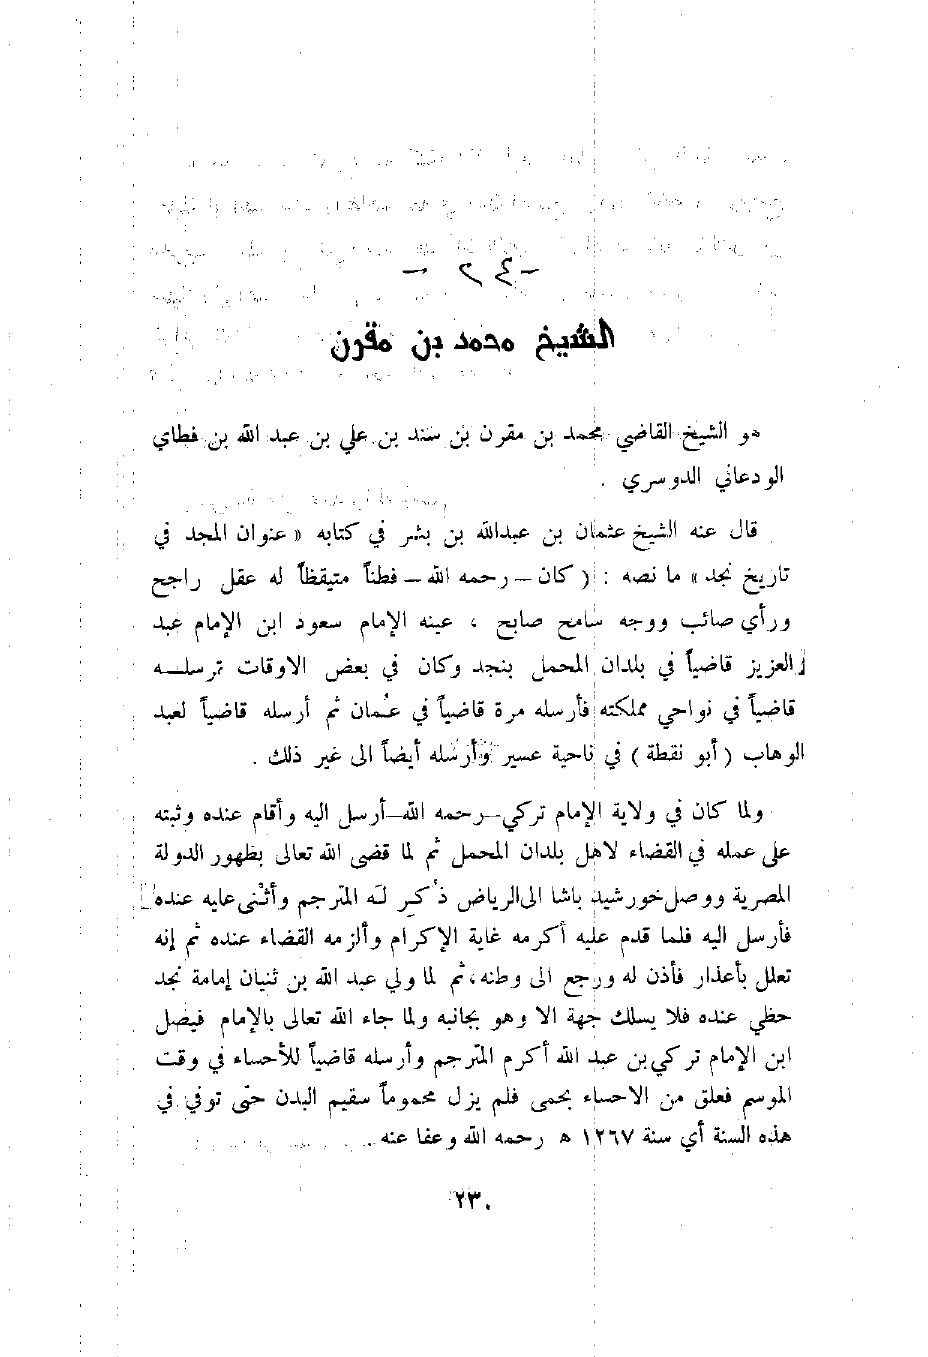 - ٢٤ -
الشيخ محمد بن مقرن
هو الشيخ القاضي محمد بن مقرن بن سند بن علي بن عبد الله بن فطاي
الودعاني الدوسري .
قال عنه الشيخ عثمان بن عبدالله بن بشر في كتابه « عنوان المجد في
تاريخ نجد » ما نصه : ( كان – رحمه الله – فطناً متيقظاً له عقل راجح
ورأي صائب ووجه سامح صابح ، عينه الإمام سعود ابن الإمام عبد
العزيز قاضياً في بلدان المحمل بنجد وكان في بعض الاوقات ترسله
قاضياً في نواحي مملكته فأرسله مرة قاضياً في عُمان ثم أرسله قاضياً لعبد
الوهاب ( أبو نقطة ) في ناحية عسير وأرسله أيضاً الى غير ذلك .
ولما كان في ولاية الإمام تركي–رحمه الله–أرسل اليه وأقام عنده وثبته
على عمله في القضاء لاهل بلدان المحمل ثم لما قضى الله تعالى بظهور الدولة
المصرية ووصل خورشيد باشا الى الرياض ذُكر له المترجم وأثنى عليه عنده
فأرسل اليه فلما قدم عليه أكرمه غاية الإكرام وألزمه القضاء عنده ثم إنه
تعلل بأعذار فأذن له ورجع الى وطنه، ثم لما ولي عبد الله بن ثنيان إمامة نجد
حظي عنده فلا يسلك جهة الا وهو بجانبه ولما جاء الله تعالى بالإمام فيصل
ابن الإمام تركي بن عبد الله أكرم المترجم وأرسله قاضياً للأحساء في وقت
الموسم فعلق من الاحساء بحمى فلم يزل محموماً سقيم البدن حتى توفي في
هذه السنة أي سنة ١٢٦٧ ه رحمه الله وعفا عنه .
٢٣٠